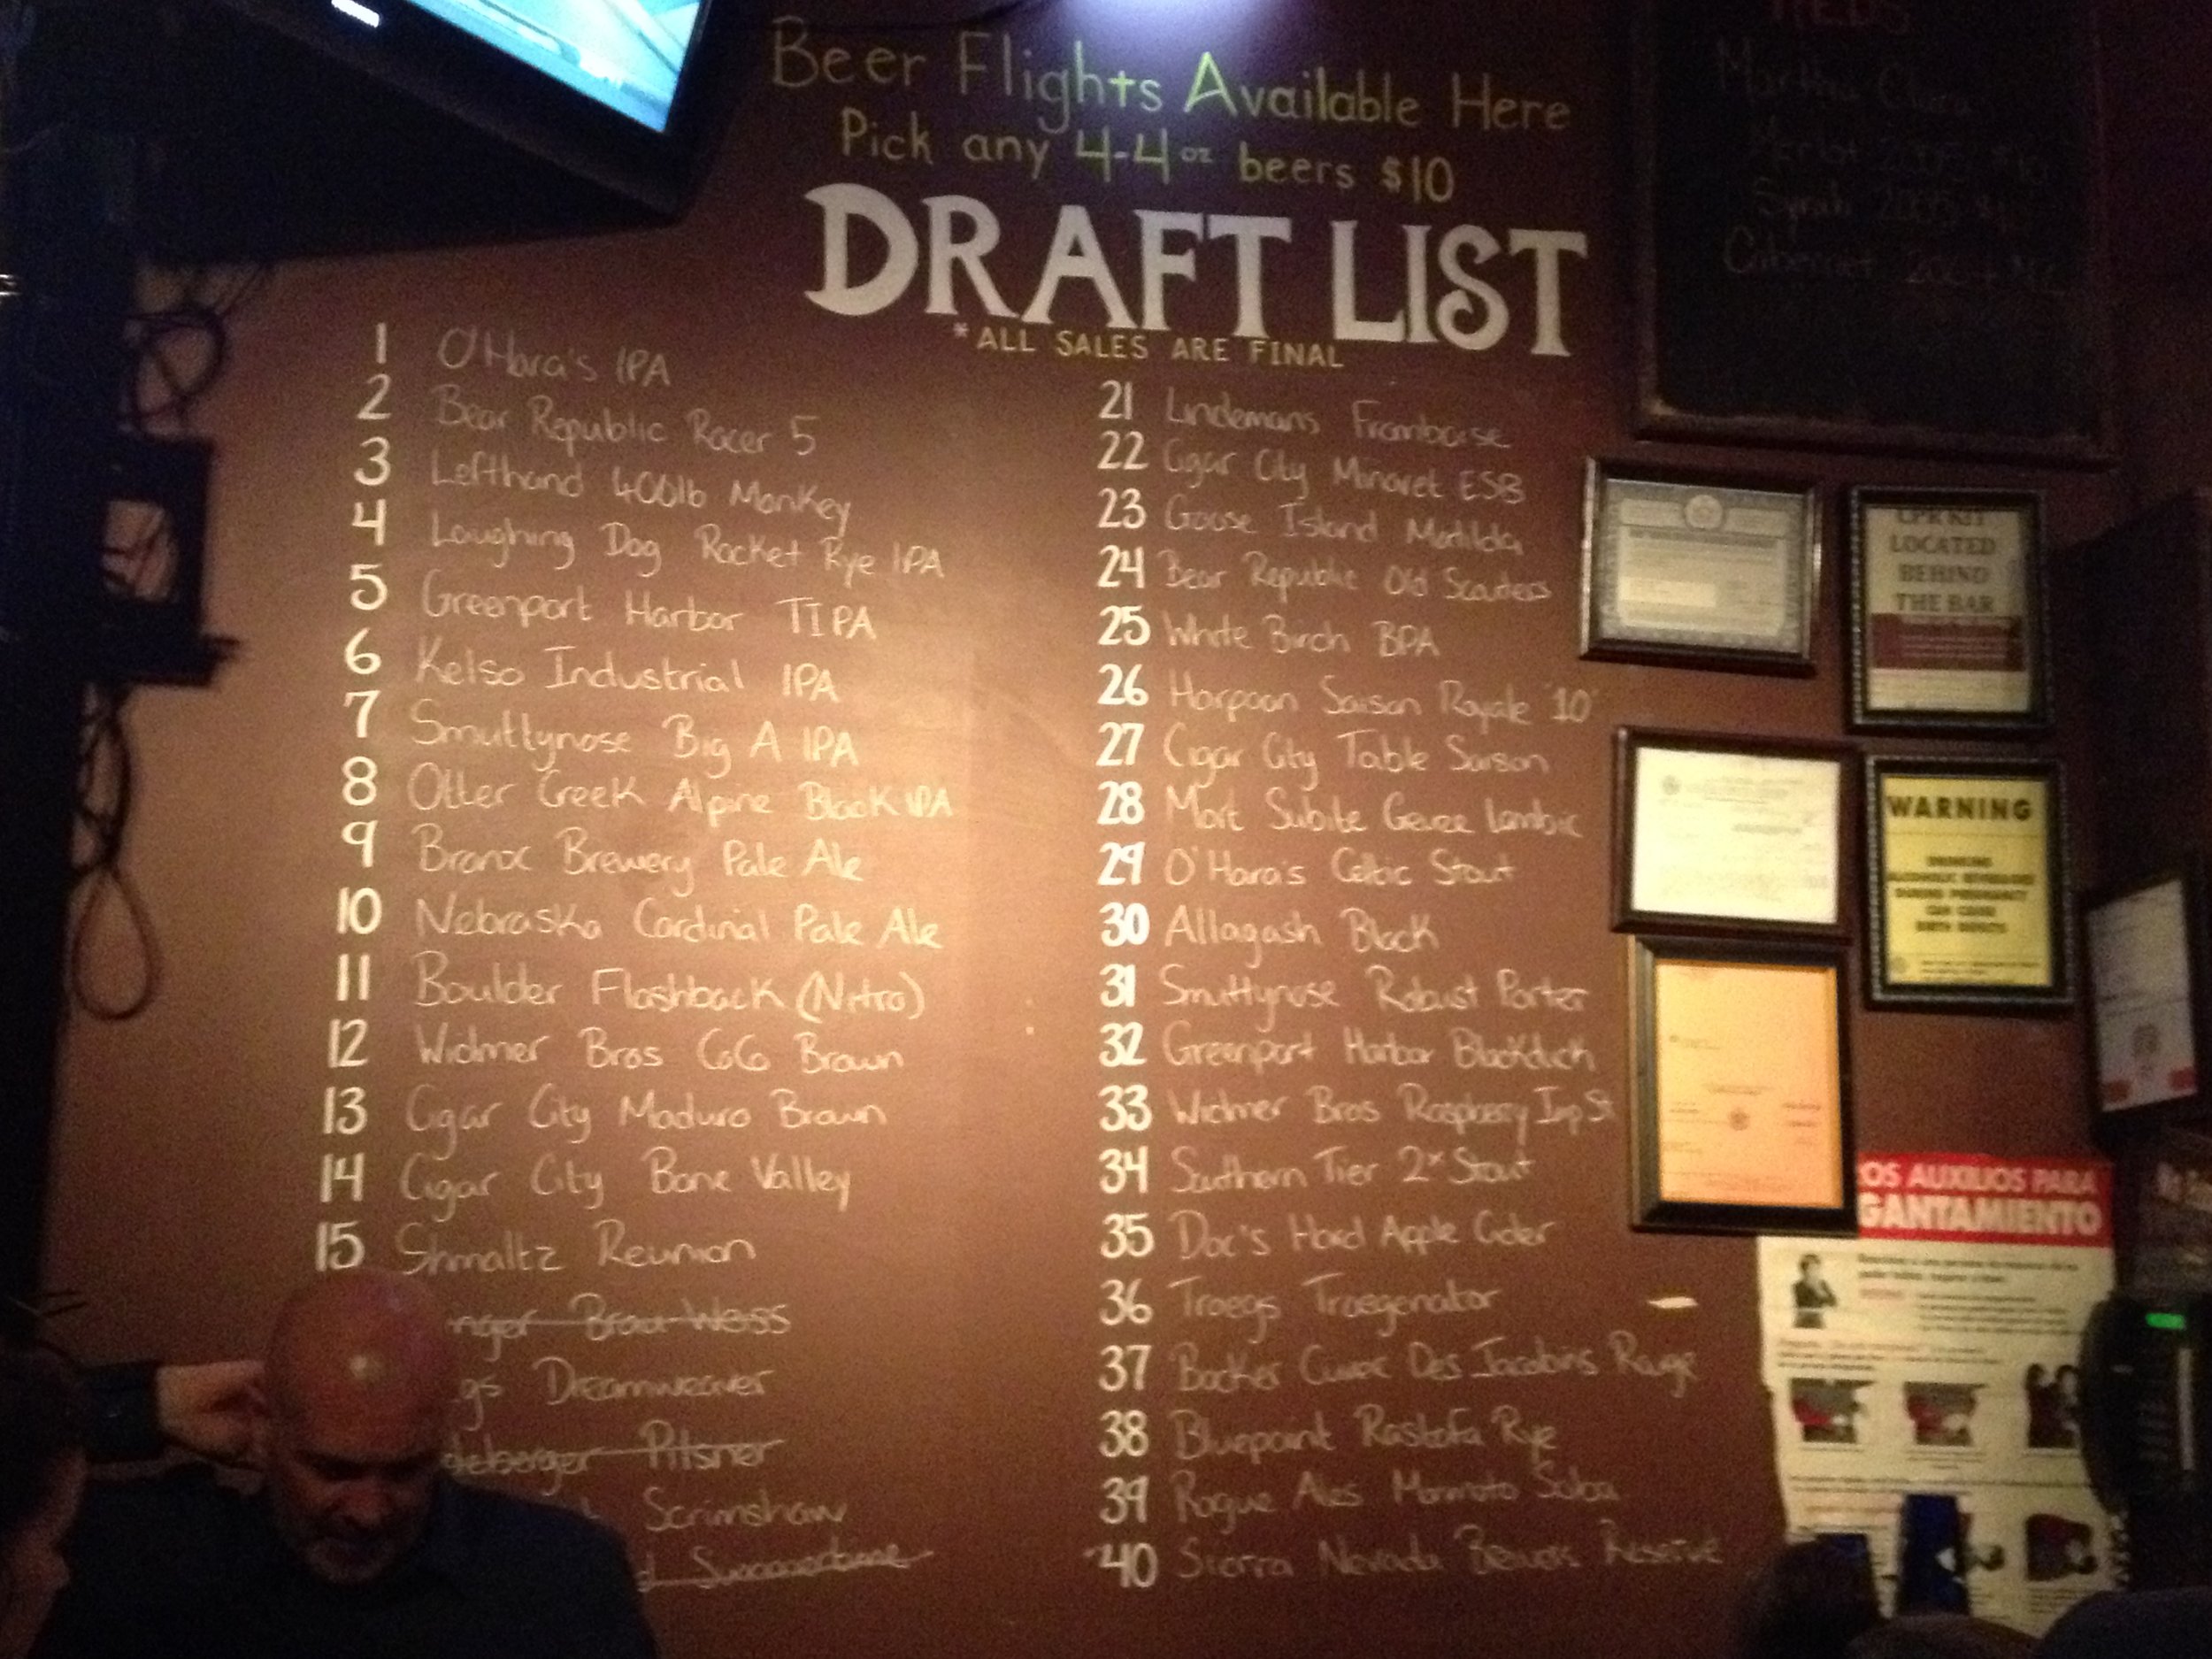 Beer Flights Available Here
Pick any 4-4oz beers $10
DRAFT LIST
*ALL SALES ARE FINAL
1 O'Hara's IPA
2 Bear Republic Racer 5
3 Lefthand 400lb Monkey
4 Laughing Dog Rocket Rye IPA
5 Greenport Harbor TIPA
6 Kelso Industrial IPA
7 Smuttynose Big A IPA
8 Otter Creek Alpine Black IPA
9 Bronx Brewery Pale Ale
10 Nebraska Cardinal Pale Ale
11 Boulder Flashback (Nitro)
12 Widmer Bros CoCo Brown
13 Cigar City Maduro Brown
14 Cigar City Bone Valley
15 Shmaltz Reunion
nger Brau-Weiss
gs Dreamweaver
deberger Pilsner
Scrimshaw
d Summertime
21 Lindemans Framboise
22 Cigar City Minaret ESB
23 Goose Island Matilda
24 Bear Republic Old Scouters
25 White Birch BPA
26 Harpoon Saison Royale '10'
27 Cigar City Table Saison
28 Mort Subite Geuze Lambic
29 O'Hara's Celtic Stout
30 Allagash Black
31 Smuttynose Robust Porter
32 Greenport Harbor Blackduck
33 Widmer Bros Raspberry Imp St
34 Southern Tier 2x Stout
35 Doc's Hard Apple Cider
36 Troegs Troegenator
37 Bocker Cuvee Des Jacobins Rouge
38 Bluepoint Rastafa Rye
39 Rogue Ales Morimoto Soba
40 Sierra Nevada Beivers Reserve
REDS
Merlot 2005
Syrah 2005
Cabernet
CPR KIT
LOCATED
BEHIND
THE BAR
WARNING
DRINKING
ALCOHOLIC BEVERAGES
DURING PREGNANCY
CAN CAUSE
BIRTH DEFECTS
OS AUXILIOS PARA
GANTAMIENTO